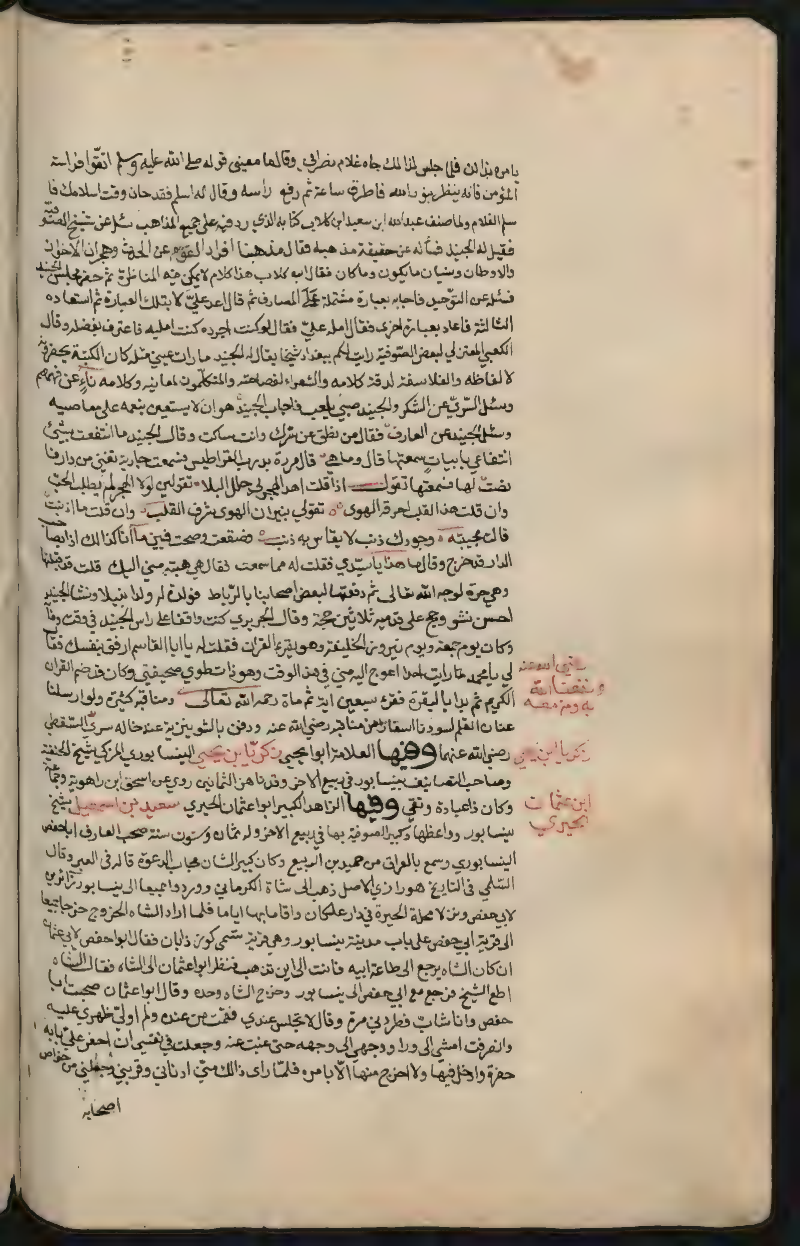 يامره بذلك فلما جلس لذلك جاه غلام نصراني وقال ما معنى قوله صلى الله عليه وسلم اتقوا فراسة
المؤمن فانه ينظر بنور الله فاطرق ساعة ثم رفع راسه وقال له اسلم فقد حان وقت اسلامك فا
سلم الغلام ولما صنف عبد الله ابن سعيد ابن كلاب كتابه الذي رد فيه على جميع المذاهب سئل عن شيخ الصوفية
فقيل له الجنيد فسأله عن حقيقة مذهبه فقال مذهبنا افراد القدم عن الحدث وهجران الاخوان
والاوطان ونسيان ما يكون وما كان فقال ابن كلاب هذا كلام لا يمكن فيه المناظرة ثم حضر مجلس الجنيد
فسئل عن التوحيد فاجابه بعبارة مشتملة على المعارف ثم قال اعد علي لا بتلك العبارة ثم استعاده
الثالثة فاعاد بعبارة اخرى فقال امله علي فقال لو كنت اجرده كنت امليه فاعترف بفضله وقال
الكعبي المعتزلي لبعض الصوفية رايت لكم ببغداد شيخا يقال له الجنيد ما رات عيني مثله كان الكتبة يحضرونه
لالفاظه والفلاسفة لدقة كلامه والشعراء لفصاحته والمتكلمون لمعانيه وكلامه ناء عن فهمهم
وسئل السري عن الشكر والجنيد صبي يلعب فاجاب الجنيد هو ان لا يستعين بنعمه على معاصيه
وسئل الجنيد عن العارف فقال من نطق عن سرك وانت ساكت وقال الجنيد ما انتفعت بشئ
انتفاعي بابيات سمعتها قال وما هي قال مررت بدرب القراطيس فسمعت جارية تغني من دار فا
نصت لها فسمعتها تقول اذا قلت اهدى الهجر لي حلل البلا تقولين لولا الهجر لم يطب الحب
وان قلت هذا القلب احرقه الهوى تقولي بنيران الهوى شرف القلب وان قلت ما اذنبت
قالت مجيبة وجودك ذنب لا يقاس به ذنب فصعقت وصحت فبينما انا كذلك اذا بصاحب
الدار قد خرج وقال ما هذا يا سيدي فقلت له مما سمعت فقال هي هبة مني اليك قلت قد قبلتها
وهي حرة لوجه الله تعالى ثم دفعتها لبعض اصحابنا بالرباط فولدت له ولدا نبيلا ونشا الجنيد
احسن نشو وحج على قدميه ثلاثين حجة وقال الجريري كنت واقفا على راس الجنيد في وقت وفاته
وكان يوم جمعة ويوم نيروز الخليفة وهو يقرء القران فقلت له يا ابا القاسم ارفق بنفسك فقال
لي يا محمد ما رايت احدا احوج اليه مني في هذا الوقت وهوذا تطوى صحيفتي وكان قد ختم القران
الكريم ثم بدا بالبقرة فقرء سبعين اية ثم مات رحمه الله تعالى ومناقبه كثيرة ولو ارسلنا
عنان القلم لسودنا اسفارا من مناقبه رضي الله عنه ودفن بالشونيزية عند خاله سري السقطي
رضي الله عنهما وفيها العلامة ابو يحيى زكريا بن يحيى النيسابوري المزكي شيخ الحنفية
وصاحب التصانيف بنيسابور في ربيع الاخر وقد ناهز الثمانين روى عن اسحق ابن راهوية وجماعة
وكان ذا عبادة وتقى وفيها الزاهد الكبير ابو اعثمان الحيري سعيد بن اسمعيل شيخ
نيسابور وواعظها وكبير الصوفية بها في ربيع الاخر وله ثمان وستون سنة صحب العارف ابا حفص
النيسابوري وسمع بالعراق من حميد بن الربيع وكان كبير الشان مجاب الدعوة قاله في العبر وقال
السلمي في التاريخ هو رازي الاصل ذهب الى شاة الكرماني ووردوا جميعا الى نيسابور زائرين
لابي حفص ونزلا محلة الحيرة في دار علكان واقاما بها اياما فلما اراد الشاه الخروج خرجا جميعا
الى قرية ابي حفص على باب مدينة نيسابور وهي قرية تسمى كورذاباذ فقال ابو احفص لابي عثمان
ان كان الشاه يرجع الى طاعة ابيه فانت الى اين تذهب فنظر ابو اعثمان الى الشاه فقال الشاه
اطع الشيخ فرجع مع ابي حفص الى نيسابور وخرج الشاه وحده وقال ابو اعثمان صحبت ابا
حفص وانا شاب فطردني مرة وقال لا تجلس عندي فقمت من عنده ولم اولي ظهري عليه
وانصرفت امشي الى ورا ووجهي الى وجهه حتى غبت عنه وجعلت في نفسي ان احفر على بابه
حفرة وادخل فيها ولا اخرج منها الا بامره فلما راى ذالك مني ادناني وقربني وجعلني من خواص
اصحابه
رضي الله عنه
ونفعنا الله
به ومن معه
زكريا ابن يحيى
ابن عثمان
الحيري